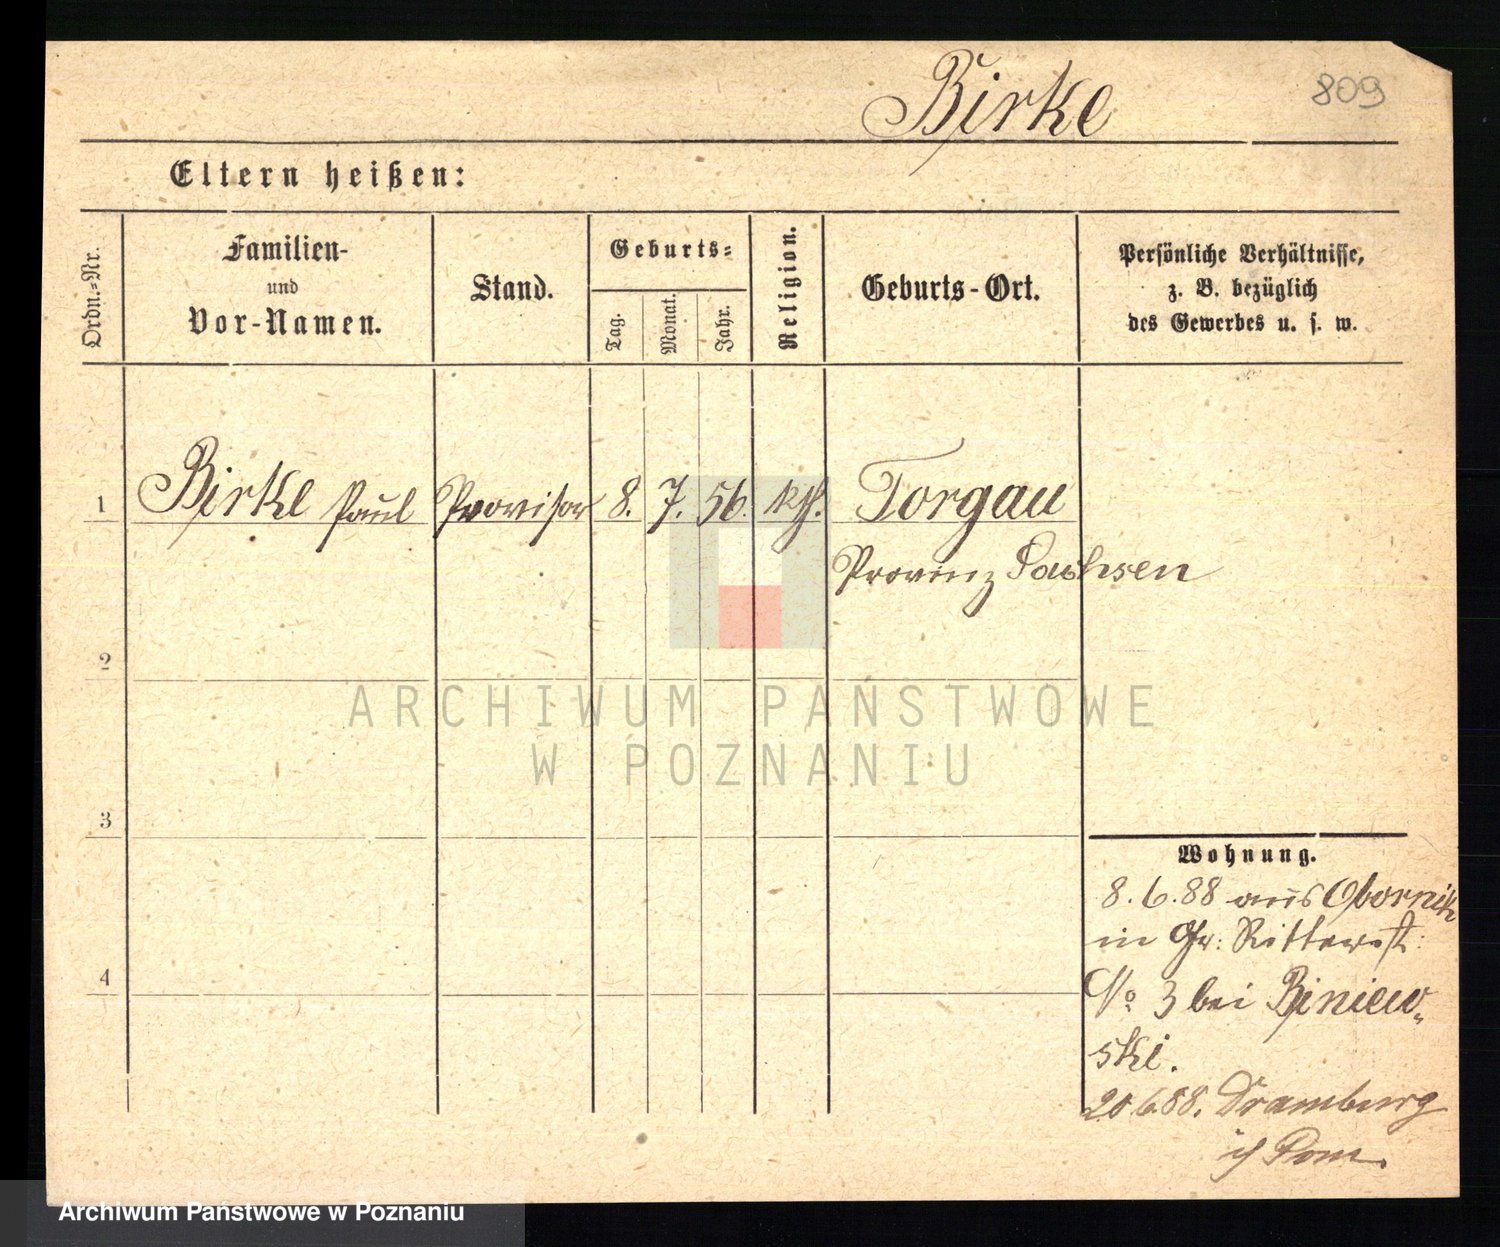 Birke
809
Eltern heißen:
Ordn.-Nr.
Familien-
und
Vor-Namen.
Stand.
Geburts-
Tag.
Monat.
Jahr.
Religion.
Geburts-Ort.
Persönliche Verhältnisse,
z. B. bezüglich
des Gewerbes u. s. w.
1 Birke Paul Provisor 8. 7. 56. kth. Torgau
Provinz Sachsen
2
3
4
Wohnung.
8.6.88 aus Obornik
in Gr: Ritterst:
No 3 bei Biniew-
ski.
20 6.88. Dramburg
Pom.
ARCHIWUM PAŃSTWOWE
W POZNANIU
Archiwum Państwowe w Poznaniu